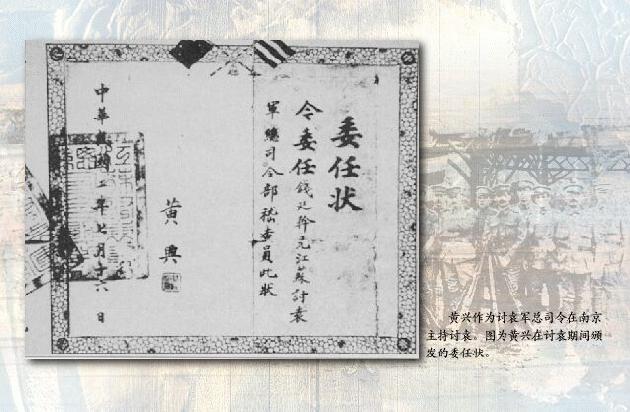 委任状
令委任錢廷幹充江蘇討袁
軍總司令部員此狀
黃興
中華民國二年七月十六日
黄兴作为讨袁军总司令在南京
主持讨袁。图为黄兴在讨袁期间颁
发的委任状。